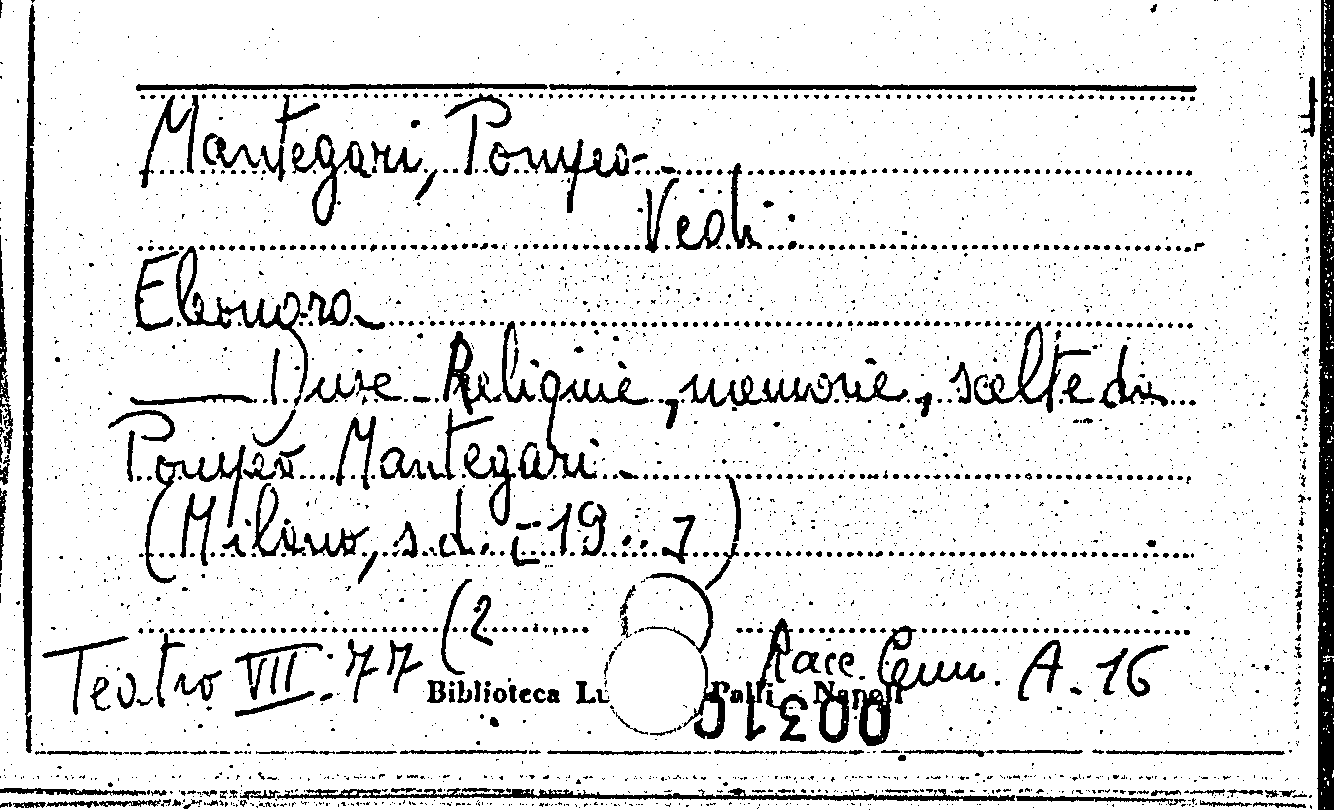 Mantegari, Pompeo -
Vedi:
Eleonora
— Duse - Reliquie, memorie, scelte da
Pompeo Mantegari -
(Milano, s.d. [-19..])
(2
Teatro VII. 77
Racc. Cum. A. 16
Biblioteca Lu Palli - Napoli